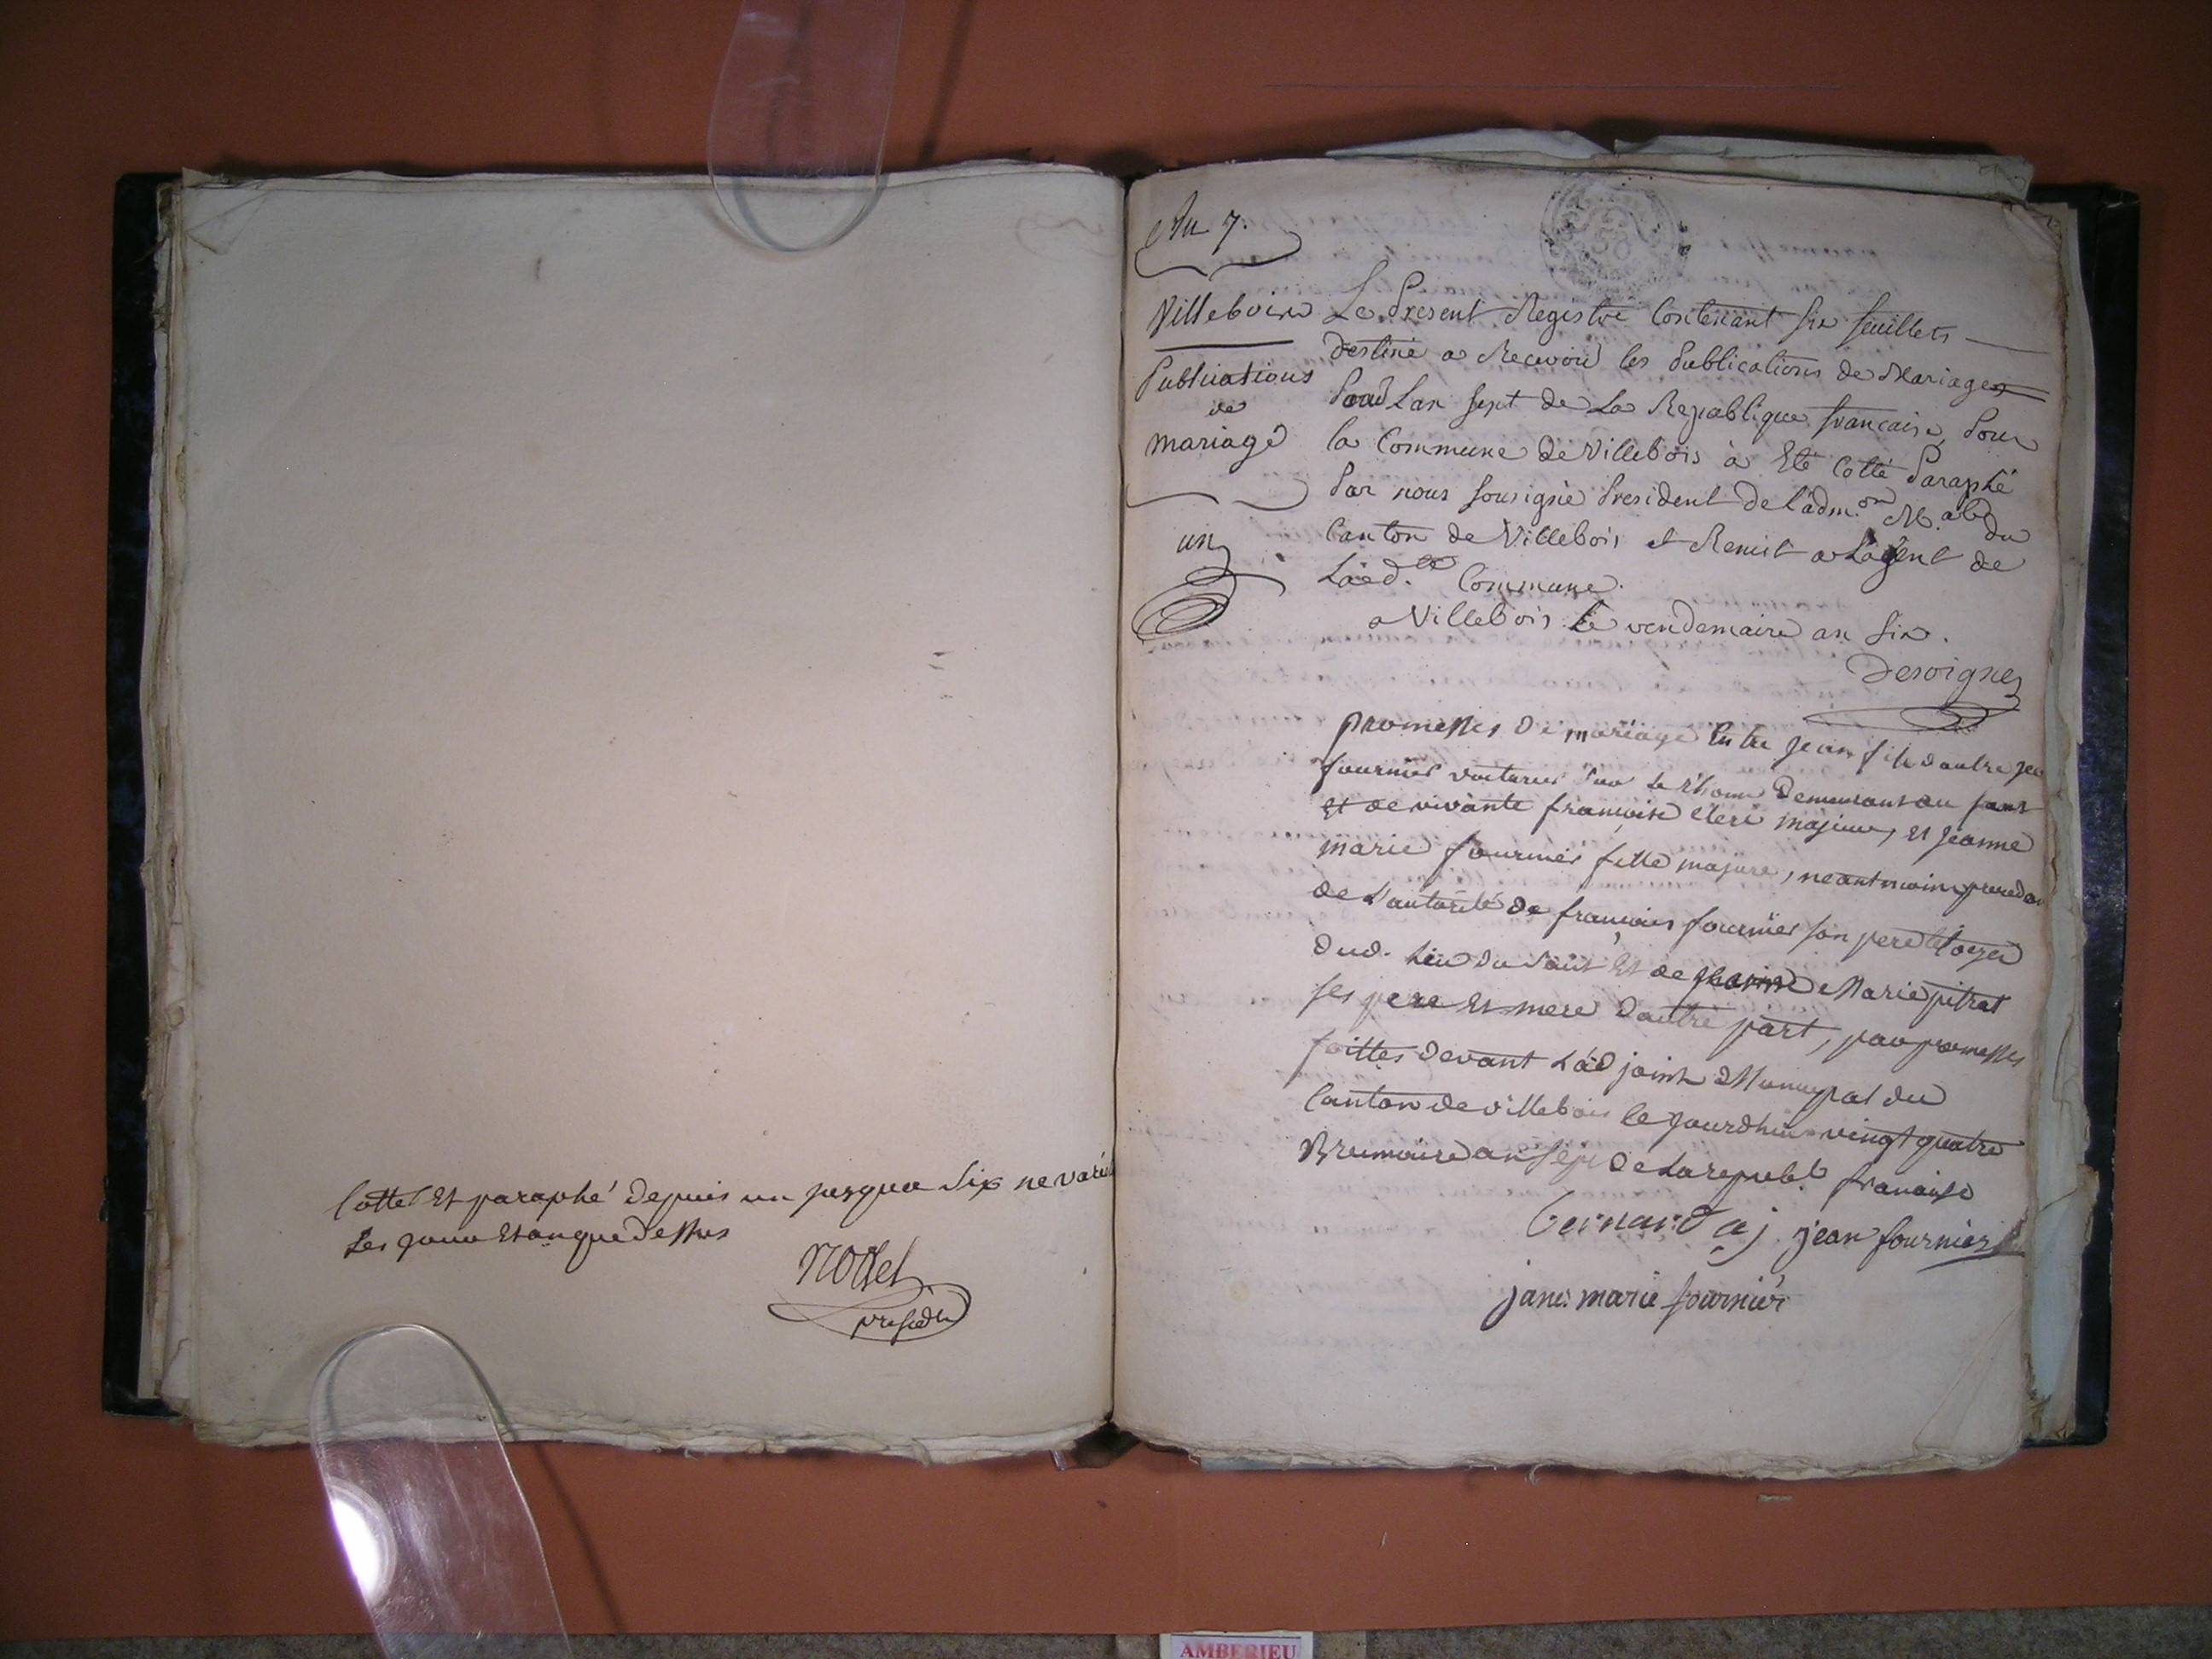 Cotté Et paraphé depuis un jusqua Six ne varie
Les jour Et an que dessus
presidt
An 7.
Villebois
Publications
de
mariage
un
Le Present Registre Contenant six feuillets
Destiné a Recevoir les Publications de Mariages
Pour Lan sept de La Republique francaise, Pour
la Commune De Villebois à Eté Cotté Paraphé
Par nous sousigné President de l'adm.on M.ale du
Canton de Villebois et Remit a Lagent de
Laed.te Commune.
a Villebois le vendemaire an Six.
Desvignes
promesses de mariage Entre Jean fils d'autre Jea
fournier voiturier sur le Rhone demeurant au saut
Et de vivante françoise majeur, Et Jeanne
marie fournier fille majeure, neantmoins proceda
de L'autorité de françois fournier son pere
dud. Lieu du saut Et de Marie pitrat
ses pere Et mere d'autre part, par promesses
faittes devant L'adjoint Municipal du
Canton de villebois Cejourdhui vingt quatre
Brumaire an sept de La republ. francaise
Bernard aj. jean fournier
jane marie fournier
AMBERIEU